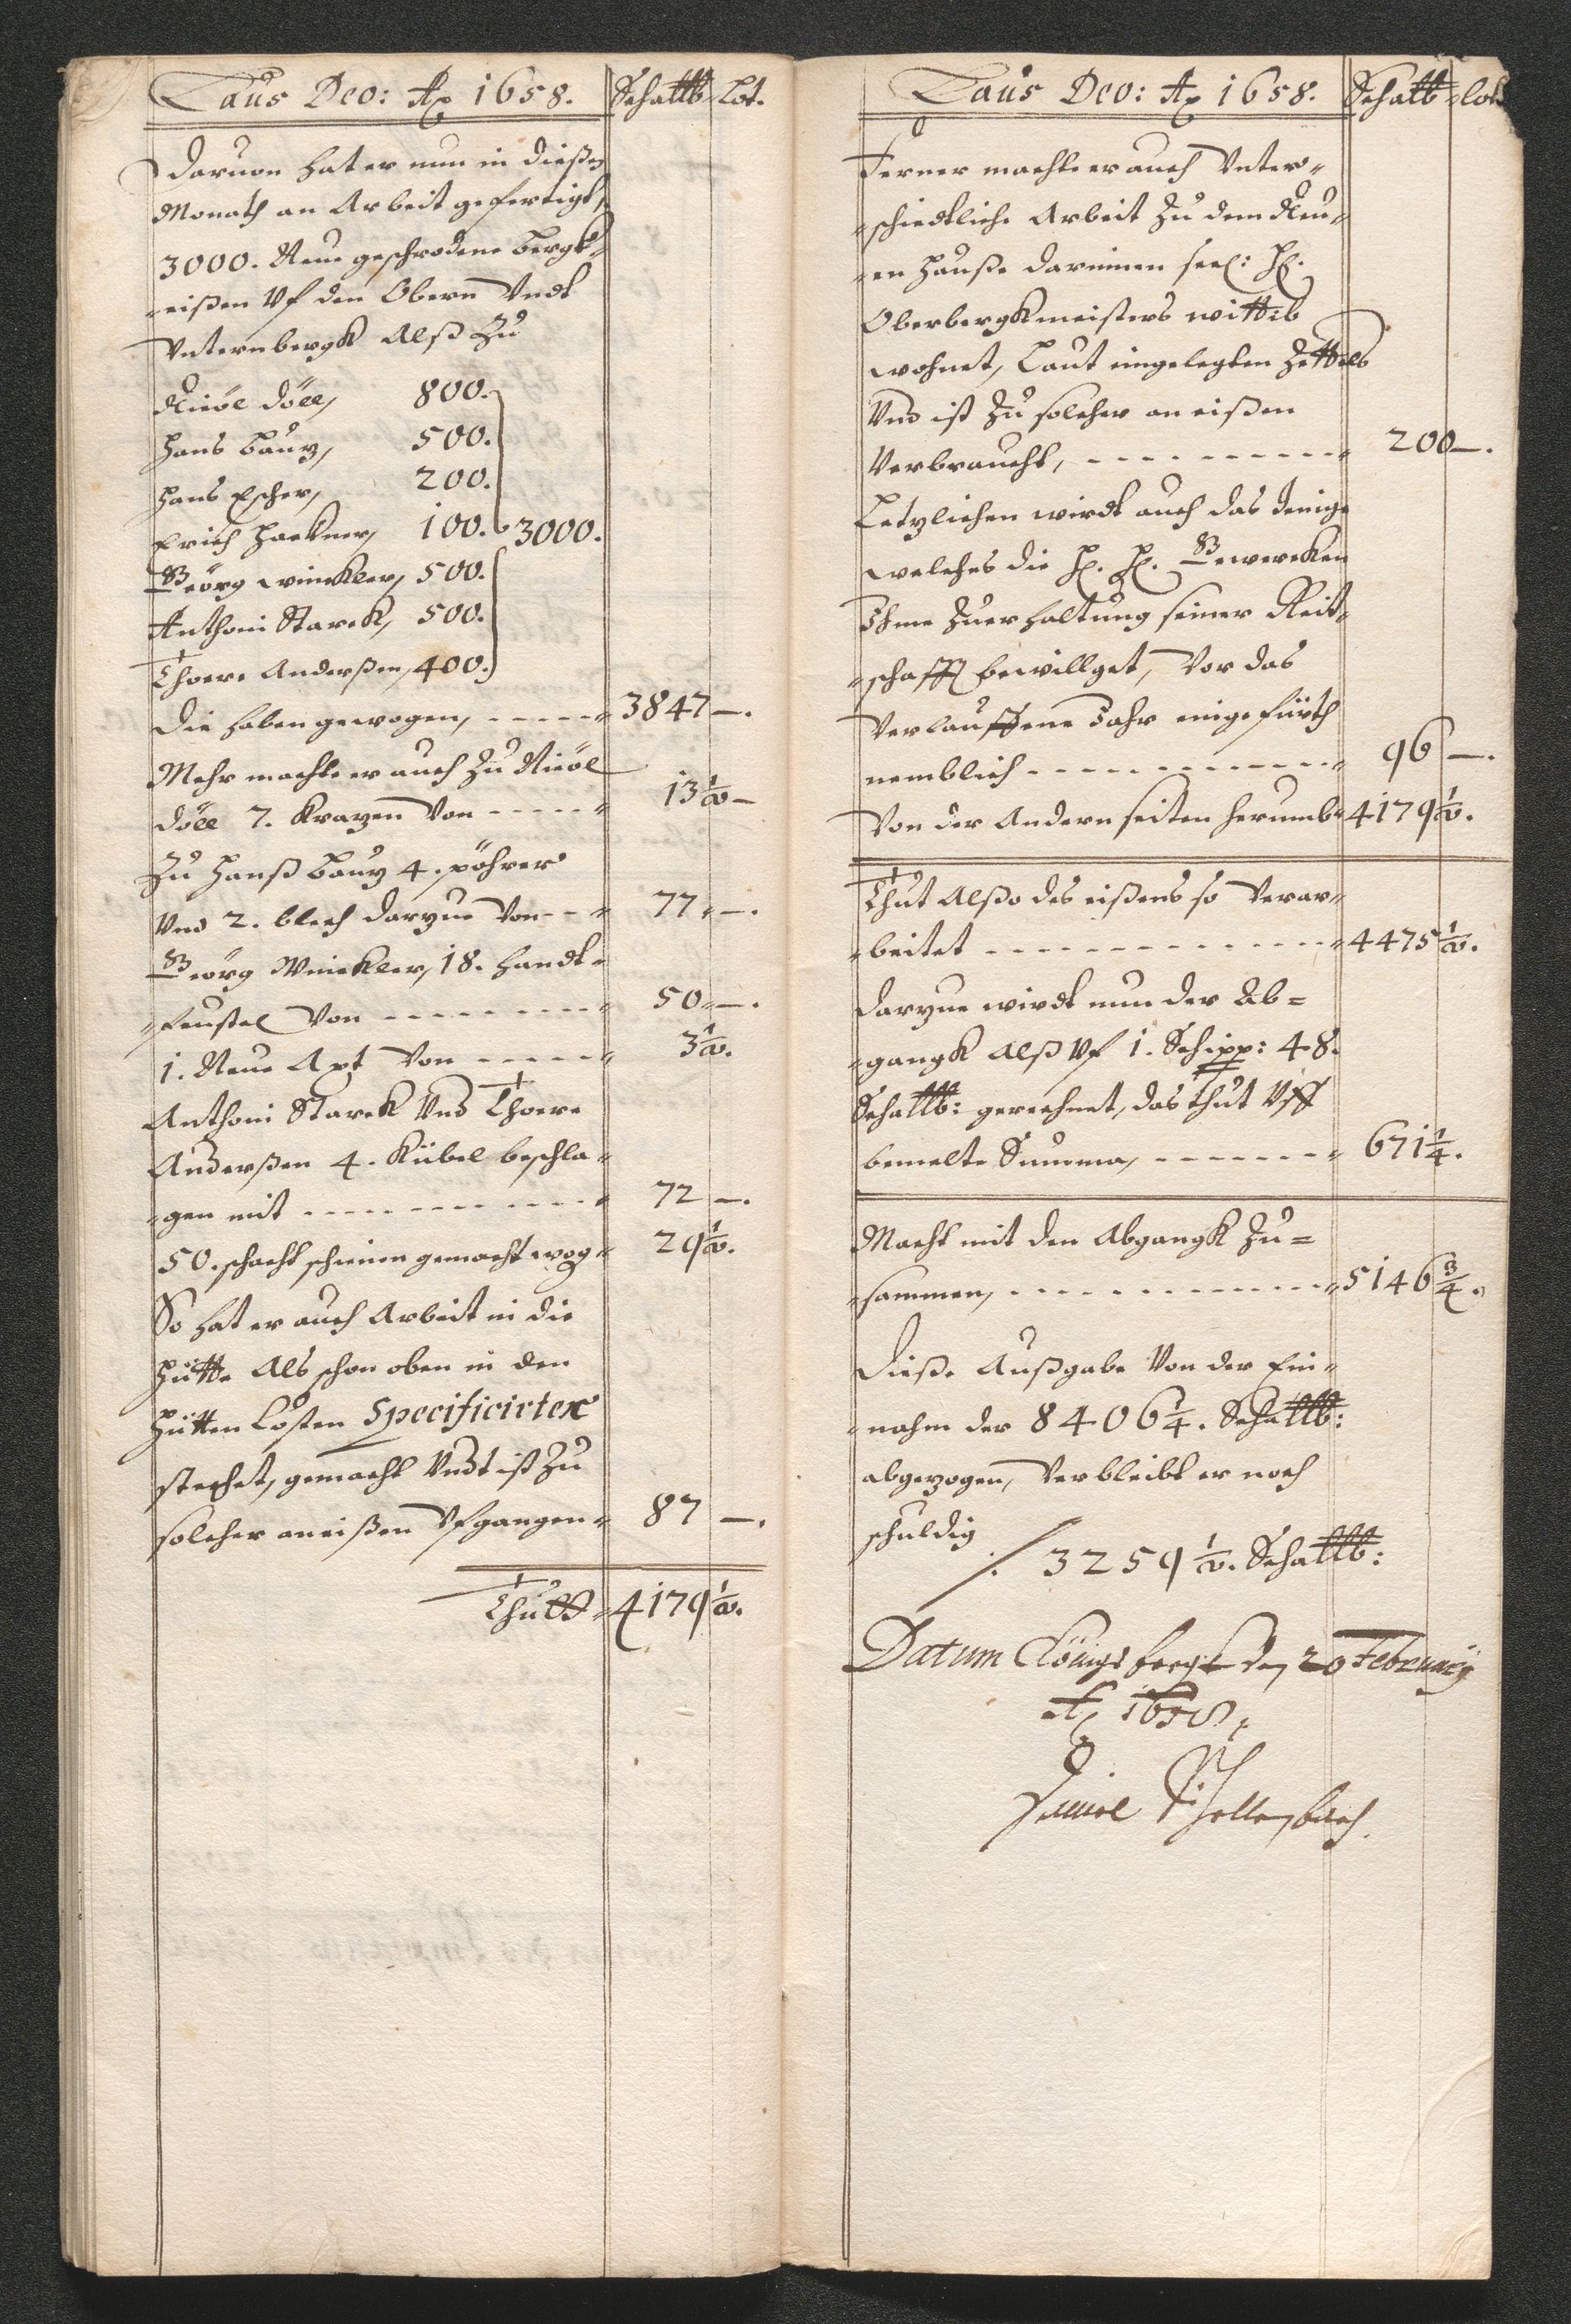 Laus Deo: Ao 1658. Schallb Lot.
Daruon hat er nun in dießen
Monath an Arbeit gefertigt,
3000. Neue geschrodene Bergk-
-eißen Vf den Obern Vndt
Vnternbergk Alß Zu
Nicol Döll, 800.
Hans Bautz, 500.
Hans Escher, 200.
Erich Hackner, 100. 3000.
Georg Winckler, 500.
Anthoni Starck, 500.
Thoere Anderßen, 400.
Die haben gewogen, - - - - - 3847 —.
Mehr machte er auch Zu Nicol
Döll 7. Kratzen Von - - - - - 13 1/2 —
Zu Hanß Bautz 4. pöhrer
Vnd 2. blech darzue Von - - 77 —.
Georg Winckler, 18. handt-
-feustel Von - - - - - - - - - 50 —.
1. Neue Axt Von - - - - - 3 1/2.
Anthoni Starck Vnd Thoere
Anderßen 4. Kübel beschla-
-gen mit - - - - - - - - - - 72 —.
50. schacht schienen gemacht wog- 29 1/2.
So hat er auch Arbeit in die
Hütte Als schon oben in den
Hütten Costen Specificirter
stechet, gemacht Vndt ist Zu
solcher an eißen Vfgangen 87 —.
Thutt 4179 1/2.
Laus Deo: Ao 1658. Schallb Lot
Ferner machte er auch Vnter-
-schiedtliche Arbeit Zu dem Neu-
-en Hauße darinnen seel: H.
Oberbergkmeisters wittib
wohnet, Laut eingelegten Zettels
Vnd ist Zu solcher an eißen
Verbraucht, - - - - - - - - - - 200 —.
Letzlichen wirdt auch das Jenige
welches die H. H. Gewercken
Ihme Zuerhaltung seiner Reit-
-schafft bewillget, Vor das
Verlauffene Jahr eingeführth
nemblich - - - - - - - - - - - 96 —.
Von der Andern seiten herumb 4179 1/2.
Thut Alßo des eißens so Verar-
-beitet - - - - - - - - - - - - - 4475 1/2.
Darzue wirdt nun der Ab=
-gangk Alß Vf 1. Schipp: 48.
Schallb: gerechnet, das thut Vff
bemelte Summa, - - - - - - - 671 1/4.
Macht mit den Abgangk Zu=
-sammen, - - - - - - - - - - - 5146 3/4.
Dieße Außgabe Von der Ein-
-nahm der 8406 1/4. Schallb:
abgezogen, Verbleibt er noch
schuldig
/. 3259 1/2. Schallb:
Datum Königsbergk den 20 February
Ao 1658.
Daniel